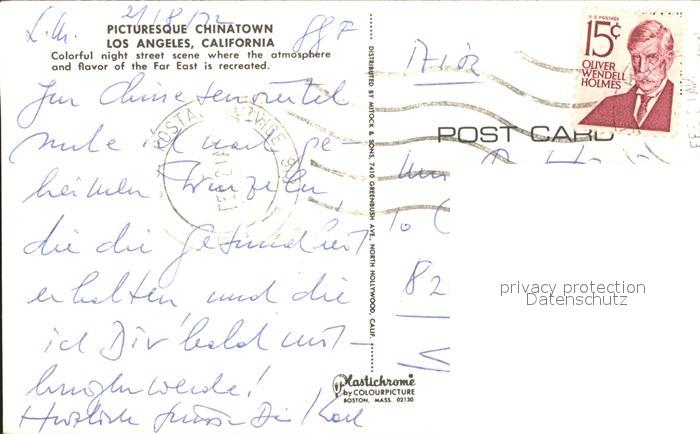 L.M. 2/18/72
PICTURESQUE CHINATOWN
LOS ANGELES, CALIFORNIA
Colorful night street scene where the atmosphere
and flavor of the Far East is recreated.
Im Chinesenviertel
suche ich nach ge-
heimen Wurzeln,
die die Gesundheit
erhalten, und die
ich Dir bald mit-
bringen werde!
Herzlich grüsst Dich Karl
DISTRIBUTED BY MITOCK & SONS, 7410 GREENBUSH AVE., NORTH HOLLYWOOD, CALIF.
Plastichrome
by COLOURPICTURE
BOSTON, MASS. 02130
U.S. POSTAGE
15¢
OLIVER
WENDELL
HOLMES
POST CARD
82
privacy protection
Datenschutz